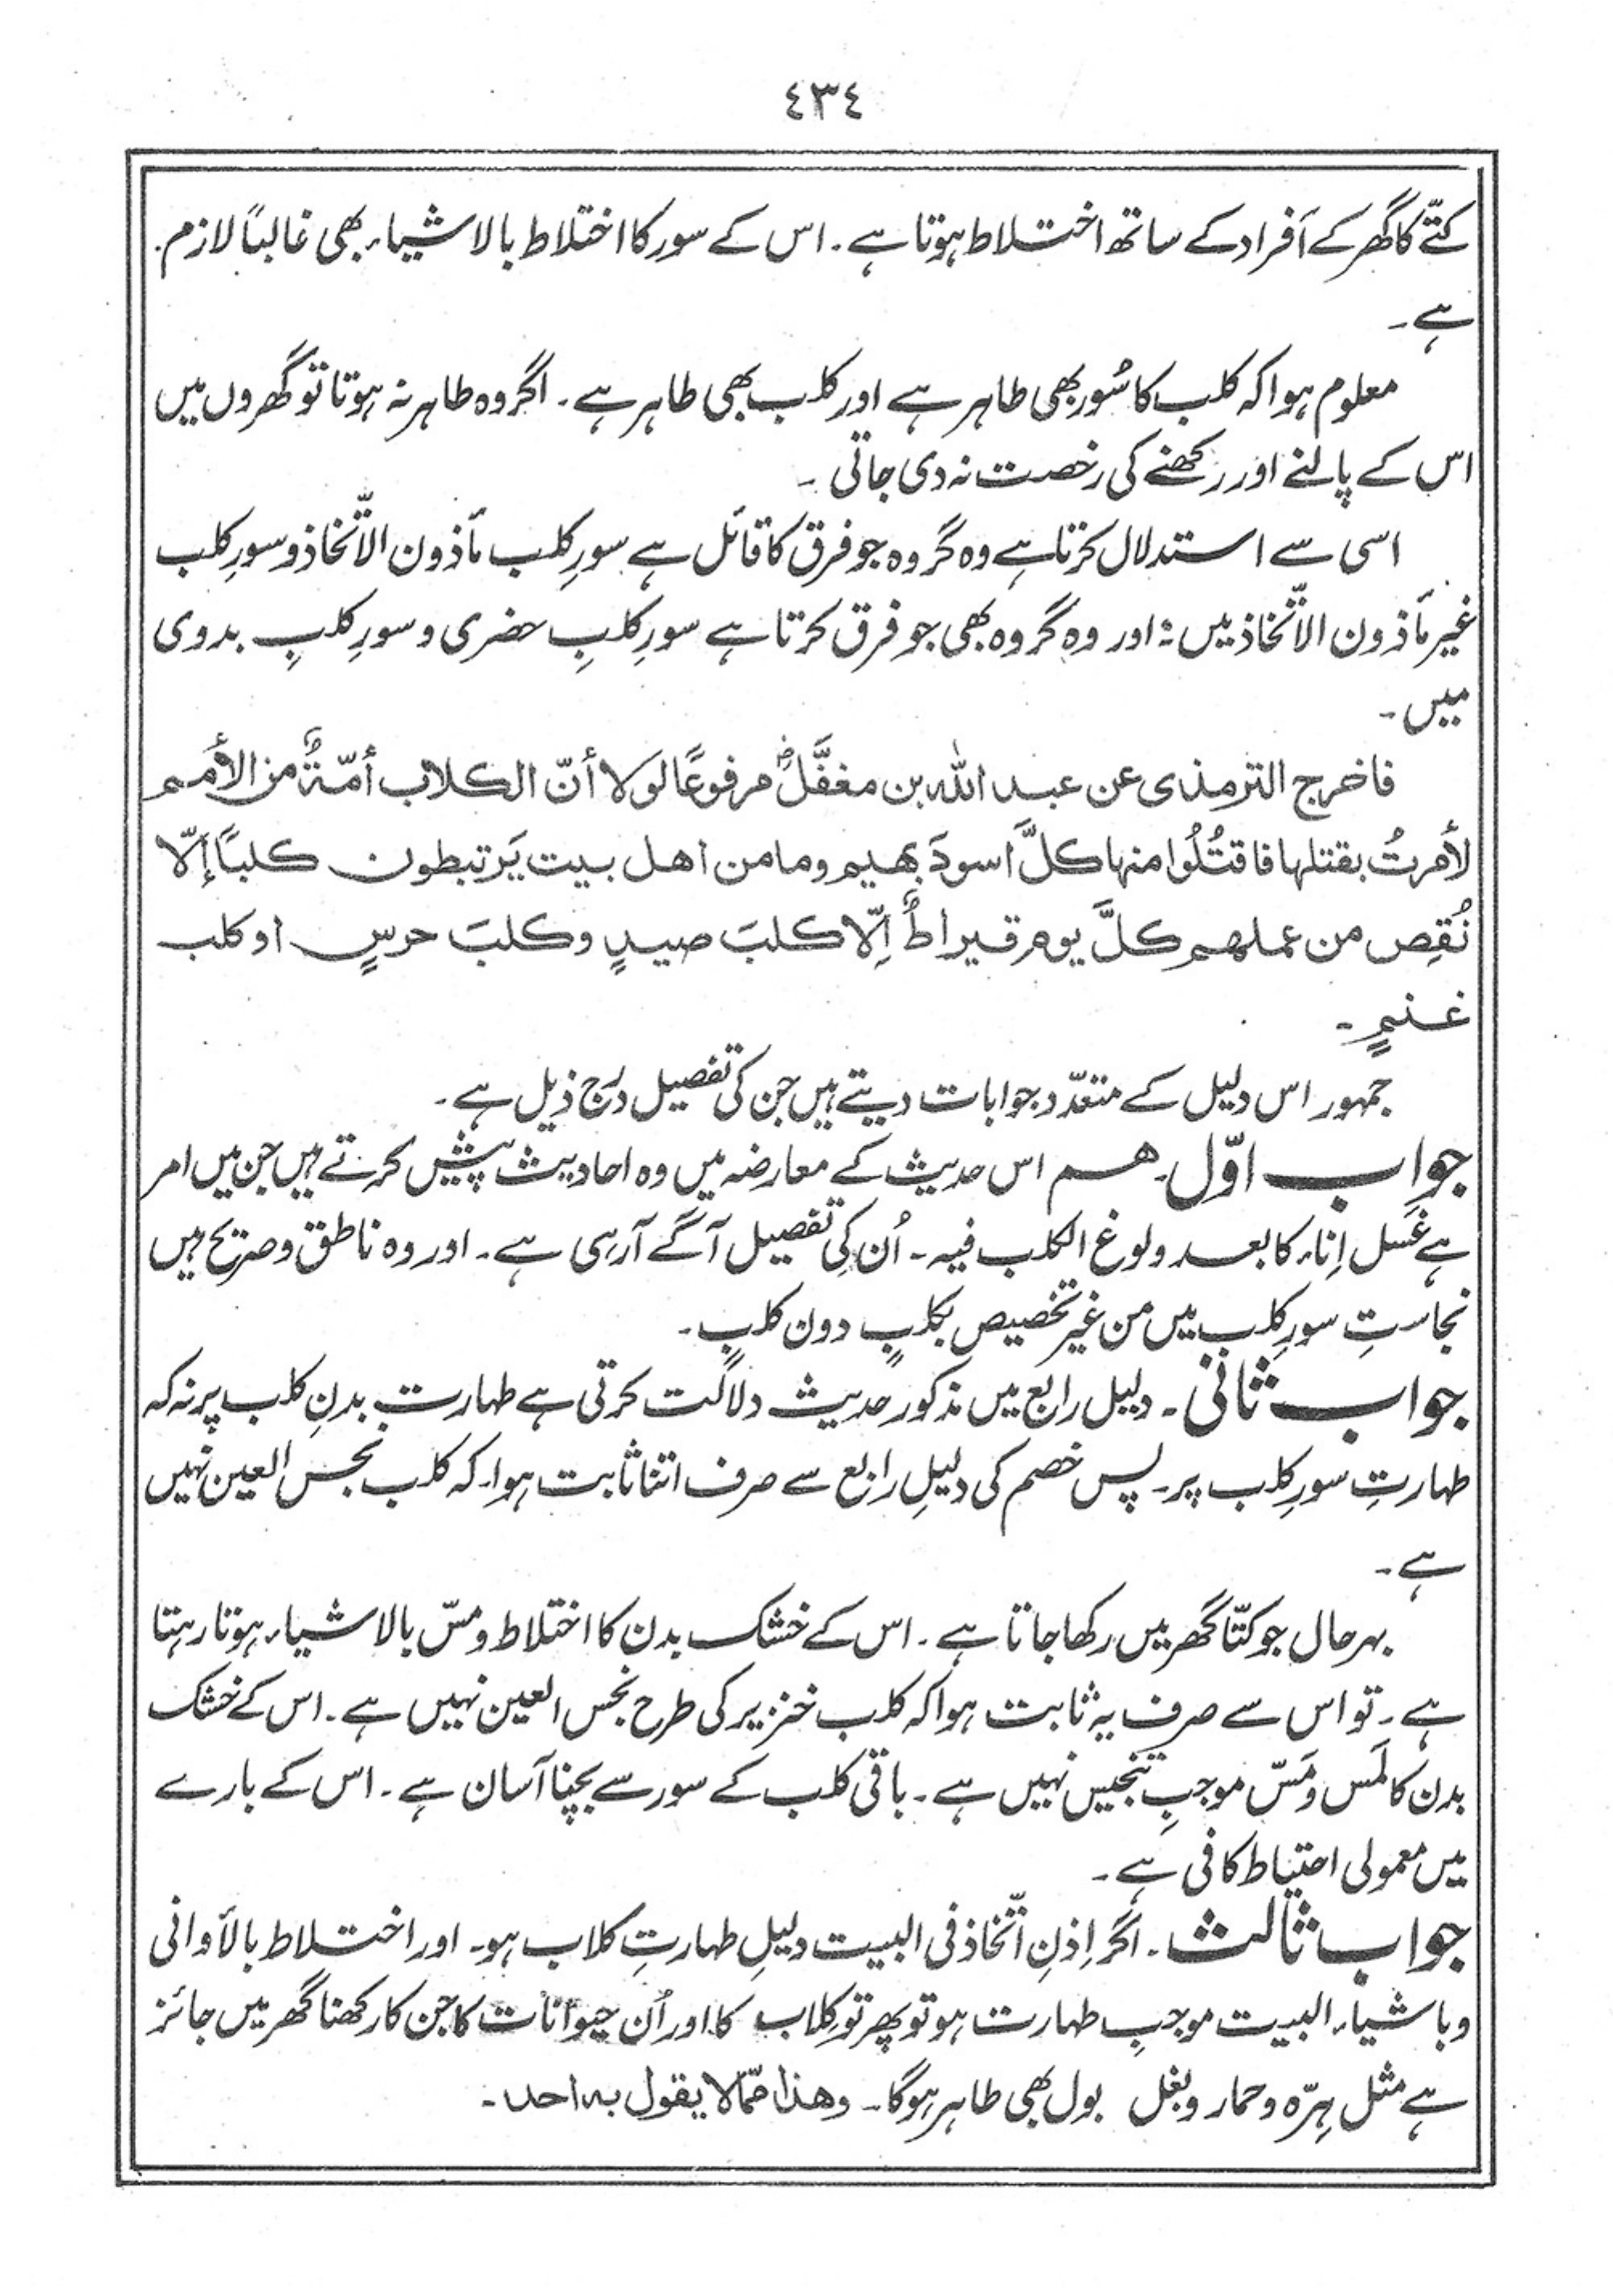 ٤٣٤
کتّے کا گھر کے اَفراد کے ساتھ اختلاط ہوتا ہے۔ اس کے سور کا اختلاط بالاشیاء بھی غالباً لازم
ہے۔
معلوم ہوا کہ کلب کا سُور بھی طاہر ہے اور کلب بھی طاہر ہے۔ اگر وہ طاہر نہ ہوتا تو گھروں میں
اس کے پالنے اور رکھنے کی رخصت نہ دی جاتی۔
اسی سے استدلال کرتا ہے وہ گروہ جو فرق کا قائل ہے سورِ کلب مأذون الاتّخاذ و سورِ کلب
غیر مأذون الاتّخاذ میں؛ اور وہ گروہ بھی جو فرق کرتا ہے سورِ کلبِ حضری و سورِ کلبِ بدوی
میں۔
فاخرج الترمذی عن عبد اللہ بن مغفَّلؓ مرفوعًا لَولا أنّ الکلاب أمّةٌ من الأُمم
لأمرتُ بقتلها فاقتُلُوا منها کلَّ اَسودَ بهیم وما من اهل بیت یَرتبطون کلبًا إلّا
نُقِص من عملهم کلَّ یوم قیراطٌ اِلّا کلبَ صیدٍ وکلبَ حرسٍ او کلب
غنمٍ۔
جمہور اس دلیل کے متعدّد جوابات دیتے ہیں جن کی تفصیل درج ذیل ہے۔
جواب اوّل۔ ہم اس حدیث کے معارضہ میں وہ احادیث پیش کرتے ہیں جن میں امر
ہے غَسل اِناء کا بعد ولوغ الکلب فیہ۔ اُن کی تفصیل آگے آرہی ہے۔ اور وہ ناطق و صریح ہیں
نجاستِ سورِ کلب میں من غیر تخصیص بکلبٍ دون کلبٍ۔
جواب ثانی۔ دلیل رابع میں مذکور حدیث دلالت کرتی ہے طہارت بدنِ کلب پر نہ کہ
طہارتِ سورِ کلب پر۔ پس خصم کی دلیلِ رابع سے صرف اتنا ثابت ہوا کہ کلب نجس العین نہیں
ہے۔
بہرحال جو کتّا گھر میں رکھا جاتا ہے۔ اس کے خشک بدن کا اختلاط و مسّ بالاشیاء ہوتا رہتا
ہے۔ تو اس سے صرف یہ ثابت ہوا کہ کلب خنزیر کی طرح نجس العین نہیں ہے۔ اس کے خشک
بدن کا لَمس و مَسّ موجبِ تنجیس نہیں ہے۔ باقی کلب کے سور سے بچنا آسان ہے۔ اس کے بارے
میں معمولی احتیاط کافی ہے۔
جواب ثالث۔ اگر اِذنِ اتّخاذ فی البیت دلیلِ طہارتِ کلاب ہو۔ اور اختلاط بالأوانی
وباشیاء البیت موجبِ طہارت ہو تو پھر تو کِلاب کا اور اُن حیوانات کا جن کا رکھنا گھر میں جائز
ہے مثل ہِرّہ و حمار و بغل بول بھی طاہر ہوگا۔ وهذا ممّا لا یقول به احد۔